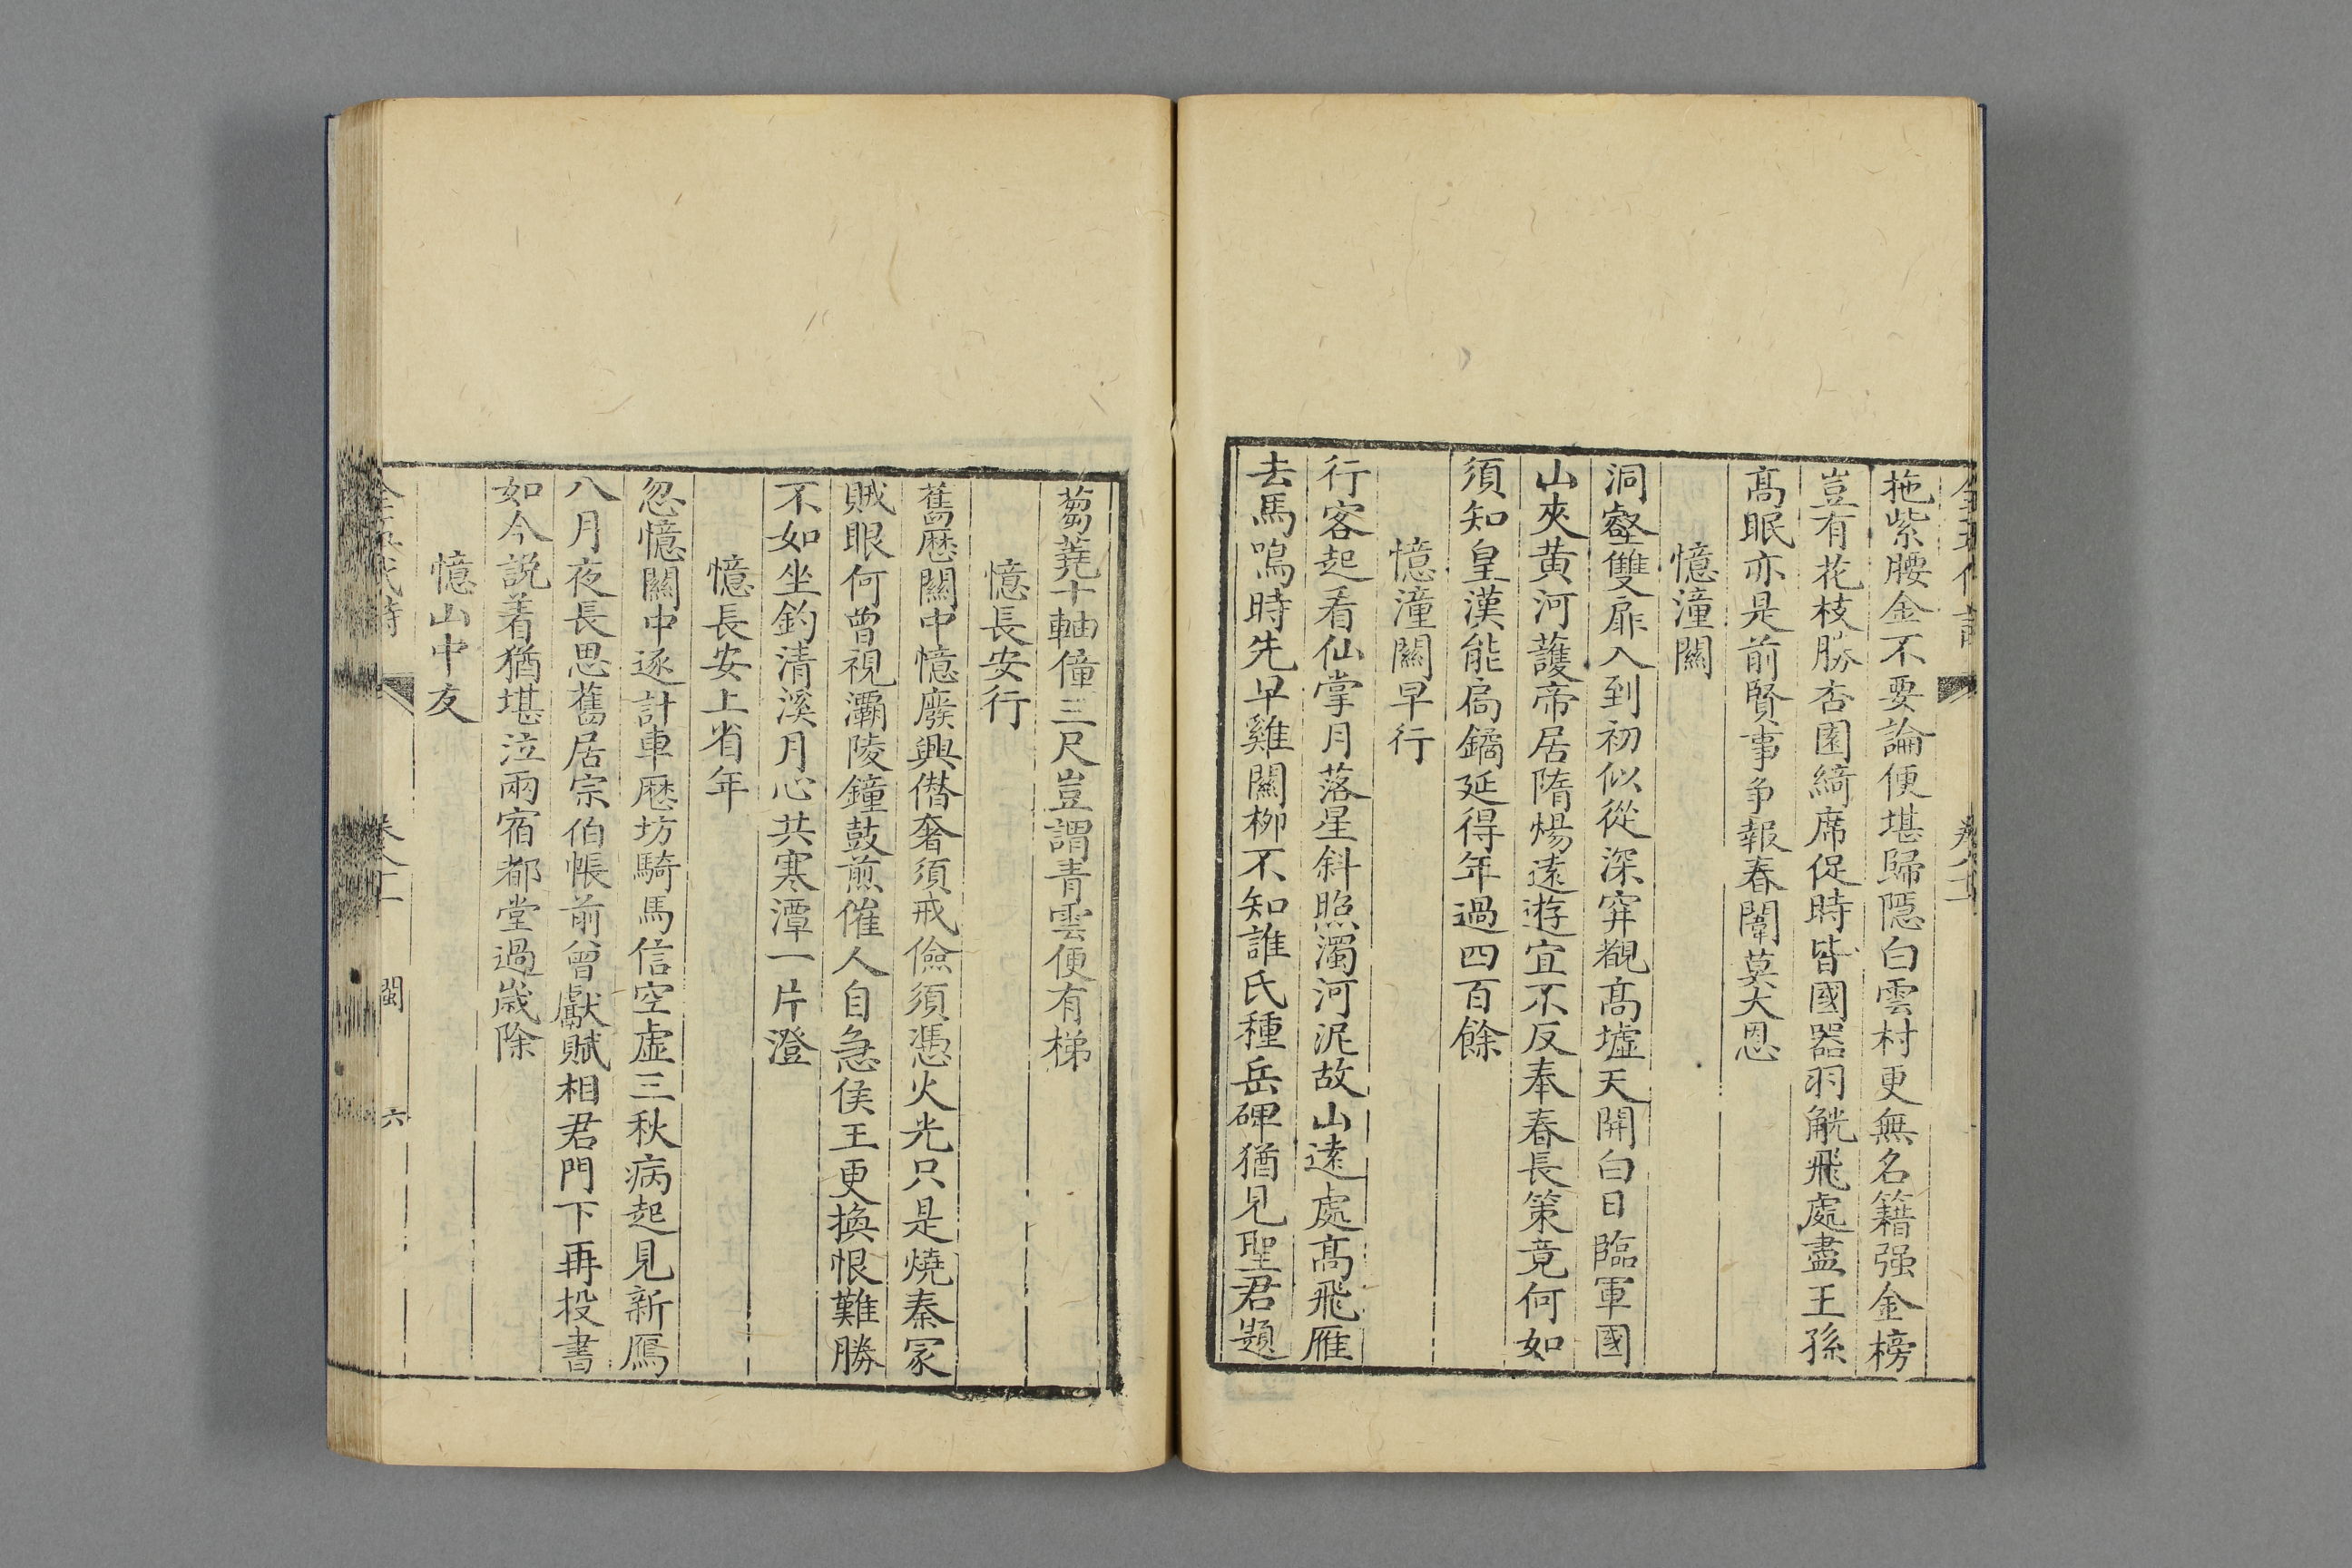 拖紫腰金不要論便堪歸隱白雲村更無名籍强金榜
豈有花枝勝杏園綺席促時皆國器羽觥飛處盡王孫
髙眠亦是前賢事争報春闈莫大恩
憶潼關
洞壑雙扉入到初似從深穽覩髙墟天開白日臨軍國
山夾黄河䕶帝居隋煬逺遊宜不反奉春長策竟何如
須知皇漢能扃鐍延得年過四百餘
憶潼關早行
行客起看仙掌月落星斜照濁河泥故山逺處髙飛雁
去馬鳴時先早雞關栁不知誰氏種岳碑猶見聖君題
蒭蕘十軸僮三尺豈謂青雲便有梯
憶長安行
舊厯關中憶廢興僭奢須戒儉須憑火光只是燒秦冢
賊眼何曽視灞陵鐘鼓煎催人自急侯王更換恨難勝
不如坐釣清溪月心共寒潭一片澄
憶長安上省年
忽憶關中逐計車厯坊騎馬信空虚三秋病起見新鴈
八月夜長思舊居宗伯帳前曾獻賦相君門下再投書
如今説着猶堪泣兩宿都堂過嵗除
憶山中友
閩
六